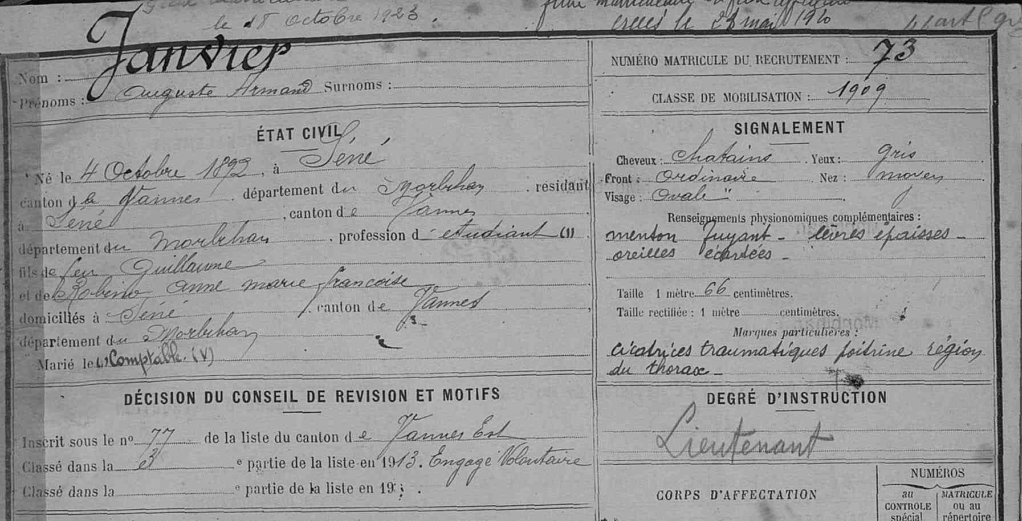 le 18 Octobre 1923.
créés le 28 mai 1920
Janvier
Nom :
Prénoms : Auguste Armand Surnoms :
ÉTAT CIVIL
Né le 4 Octobre 1892 à Séné
canton de Vannes département du Morbihan résidant
à Séné canton de Vannes
département du Morbihan profession d'étudiant (1)
fils de feu Guillaume
et de Robino anne marie françoise
domiciliés à Séné canton de Vannes
département du Morbihan
Marié le (1) Comptable. (V)
DÉCISION DU CONSEIL DE REVISION ET MOTIFS
Inscrit sous le no 77 de la liste du canton de Vannes Est
Classé dans la 3 e partie de la liste en 1913. Engagé Volontaire
Classé dans la e partie de la liste en 19
NUMÉRO MATRICULE DU RECRUTEMENT : 73
CLASSE DE MOBILISATION : 1909
SIGNALEMENT
Cheveux : chatains Yeux : gris
Front : Ordinaire Nez : moyen
Visage : Ovale "
Renseignements physionomiques complémentaires :
menton fuyant - lèvres épaisses -
oreilles écartées -
Taille 1 mètre 66 centimètres.
Taille rectifiée : 1 mètre centimètres.
Marques particulières :
cicatrices traumatiques poitrine région
du thorax -
DEGRÉ D'INSTRUCTION
Lieutenant
CORPS D'AFFECTATION
NUMÉROS
au CONTROLE spécial
MATRICULE ou au répertoire